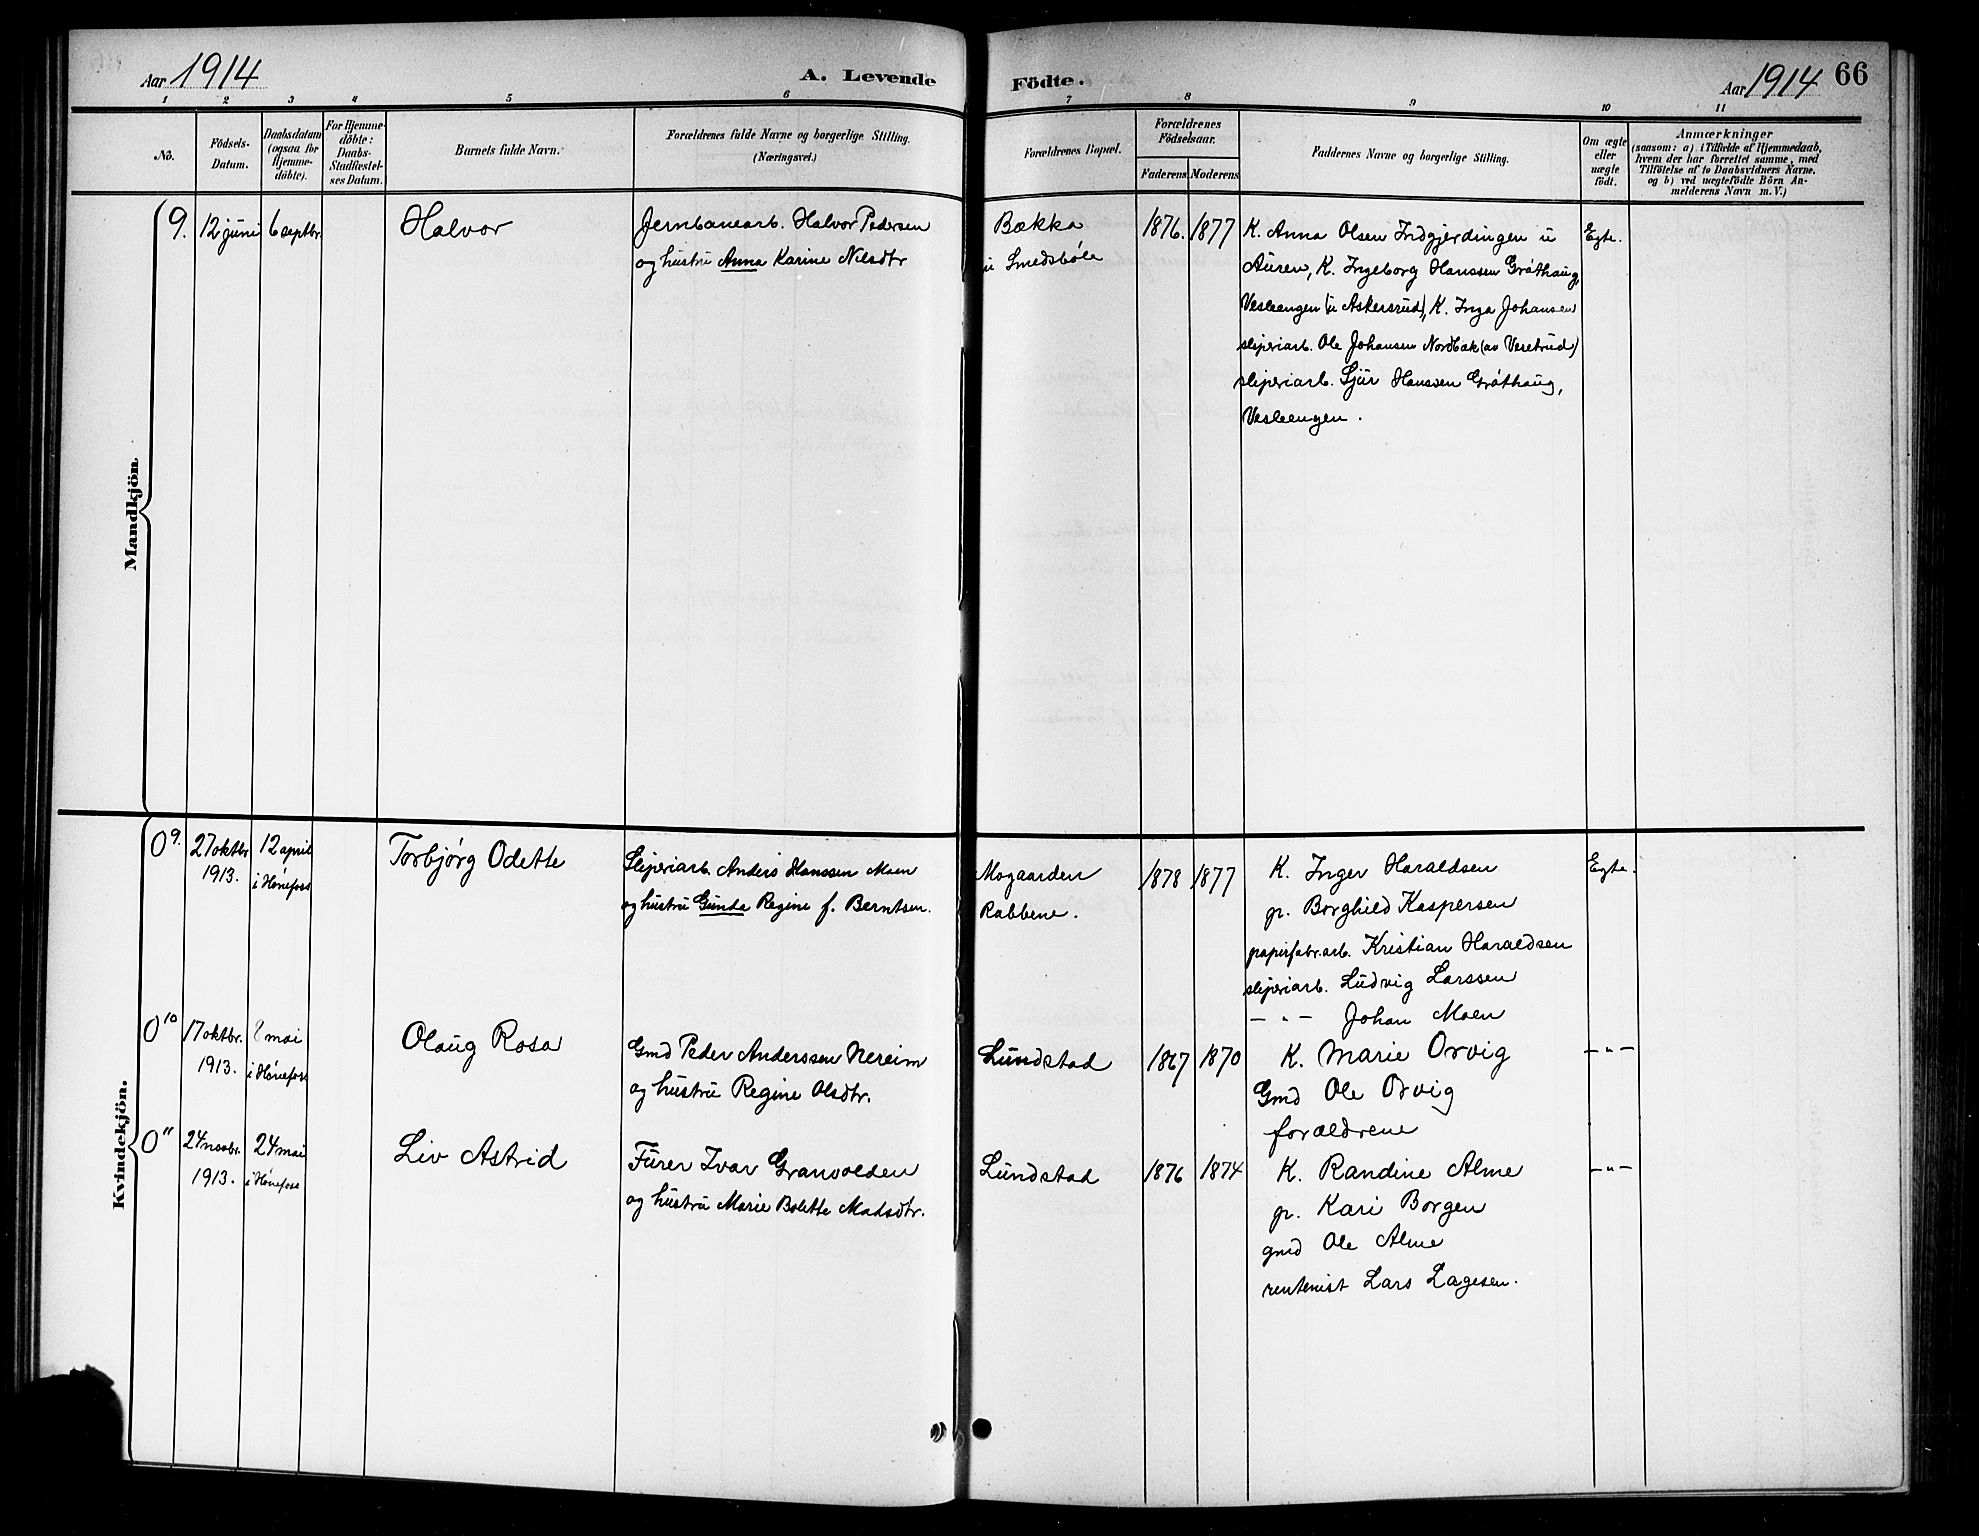 Aar 1914
A. Levende Födte.
Aar 1914 66
1 2 3 4 5 6 7 8 9 10 11
No.
Födsels-
Datum.
Daabsdatum
(ogsaa for
Hjemme-
döbte).
For Hjemme-
döbte:
Daabs-
Stadfæstel-
ses Datum.
Barnets fulde Navn.
Forældrenes fulde Navne og borgerlige Stilling.
(Næringsvei.)
Forældrenes Bopæl.
Forældrenes
Födselsaar.
Faderens Moderens
Faddernes Navne og borgerlige Stilling.
Om ægte
eller
uægte
født.
Anmærkninger
(saasom: a) i Tilfælde af Hjemmedaab,
hvem der har forrettet samme, med
Tilføielse af to Daabsvidners Navne.
og b) ved uægtefødte Börn An-
melderens Navn m. V.)
Mandkjön
9. 12 juni 6 septbr. Halvor
Jernbanearb. Halvor Pedersen
og hustru Anna Karine Nilsdtr
Bækka
u Smedsbøle
1876. 1877
K. Anna Olsen Indgjerdingen u
Auren, K. Ingeborg Hanssen Gråthaug,
Vesleengen (u Askersrud), K. Inga Johansen
sliperiarb. Ole Johansen Nordbæk (av Vesetrud)
sliperiarb. Sjur Hanssen Gråthaug,
Vesleengen.
Egte.
Kvindekjön.
0 9. 27 oktbr 1913. 12 april i Hønefoss
Torbjørg Odette
Sliperiarb. Anders Hanssen Moen
og hustru Gunda Regine f. Berntsen.
Mogaarden
Rabbene.
1878 1877
K. Inger Haraldsen
p. Borghild Kaspersen
papirfabr.arb. Kristian Haraldsen
sliperiarb. Ludvig Larssen
— " — Johan Moen
Egte.
0 10 17 oktbr. 1913. 8 mai i Hønefoss
Olaug Rosa
Gmd Peder Anderssen Nereim
og hustru Regine Olsdtr.
Lundstad
1867 1870
K. Marie Orvig
Gmd Ole Orvig
forældrene
— " —
0 11 24 novbr. 1913. 24 mai i Hønefoss
Liv Astrid
Furer Ivar Granvolden
og hustru Marie Bolette Madsdtr.
Lundstad
1876 1874
K. Randine Alme
p. Kari Borgen
gmd Ole Alme
rentenist Lars Lagesen.
— " —